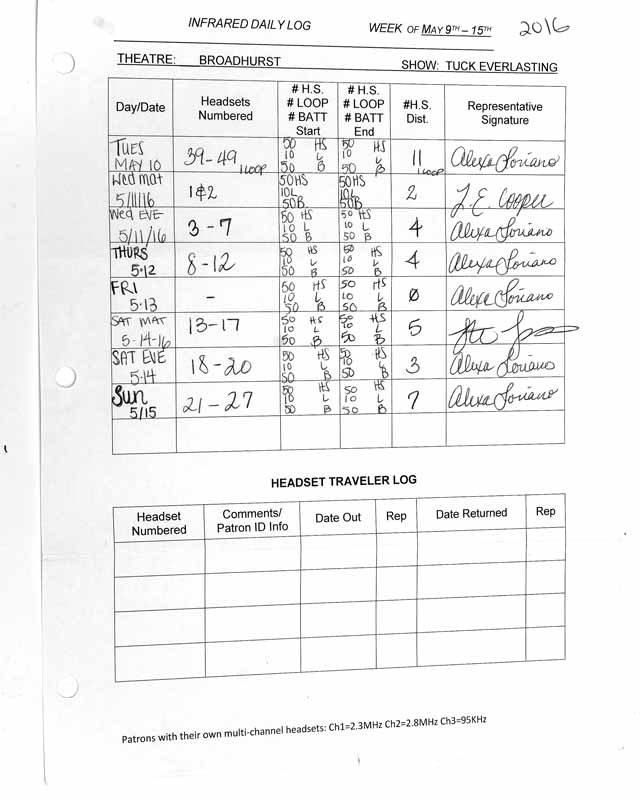 INFRARED DAILY LOG WEEK OF MAY 9TH – 15TH 2016
THEATRE: BROADHURST SHOW: TUCK EVERLASTING
Day/Date Headsets Numbered # H.S. # LOOP # BATT Start # H.S. # LOOP # BATT End #H.S. Dist. Representative Signature
TUES MAY 10 39-49 1 LOOP 50 HS 10 L 50 B 50 HS 10 L 50 B 11 1 LOOP Alexa Soriano
Wed mat 5/11/16 1&2 50HS 10L 50B 50HS 10L 50B 2 J.E. Cooper
Wed EVE 5/11/16 3-7 50 HS 10 L 50 B 50 HS 10 L 50 B 4 Alexa Soriano
THURS 5.12 8-12 50 HS 10 L 50 B 50 HS 10 L 50 B 4 Alexa Soriano
FRI 5.13 - 50 HS 10 L 50 B 50 HS 10 L 50 B 0 Alexa Soriano
SAT MAT 5-14-16 13-17 50 HS 10 L 50 B 50 HS 10 L 50 B 5
SAT EVE 5.14 18-20 50 HS 10 L 50 B 50 HS 10 L 50 B 3 Alexa Soriano
Sun 5/15 21-27 50 HS 10 L 50 B 50 HS 10 L 50 B 7 Alexa Soriano
HEADSET TRAVELER LOG
Headset Numbered Comments/ Patron ID Info Date Out Rep Date Returned Rep
Patrons with their own multi-channel headsets: Ch1=2.3MHz Ch2=2.8MHz Ch3=95KHz